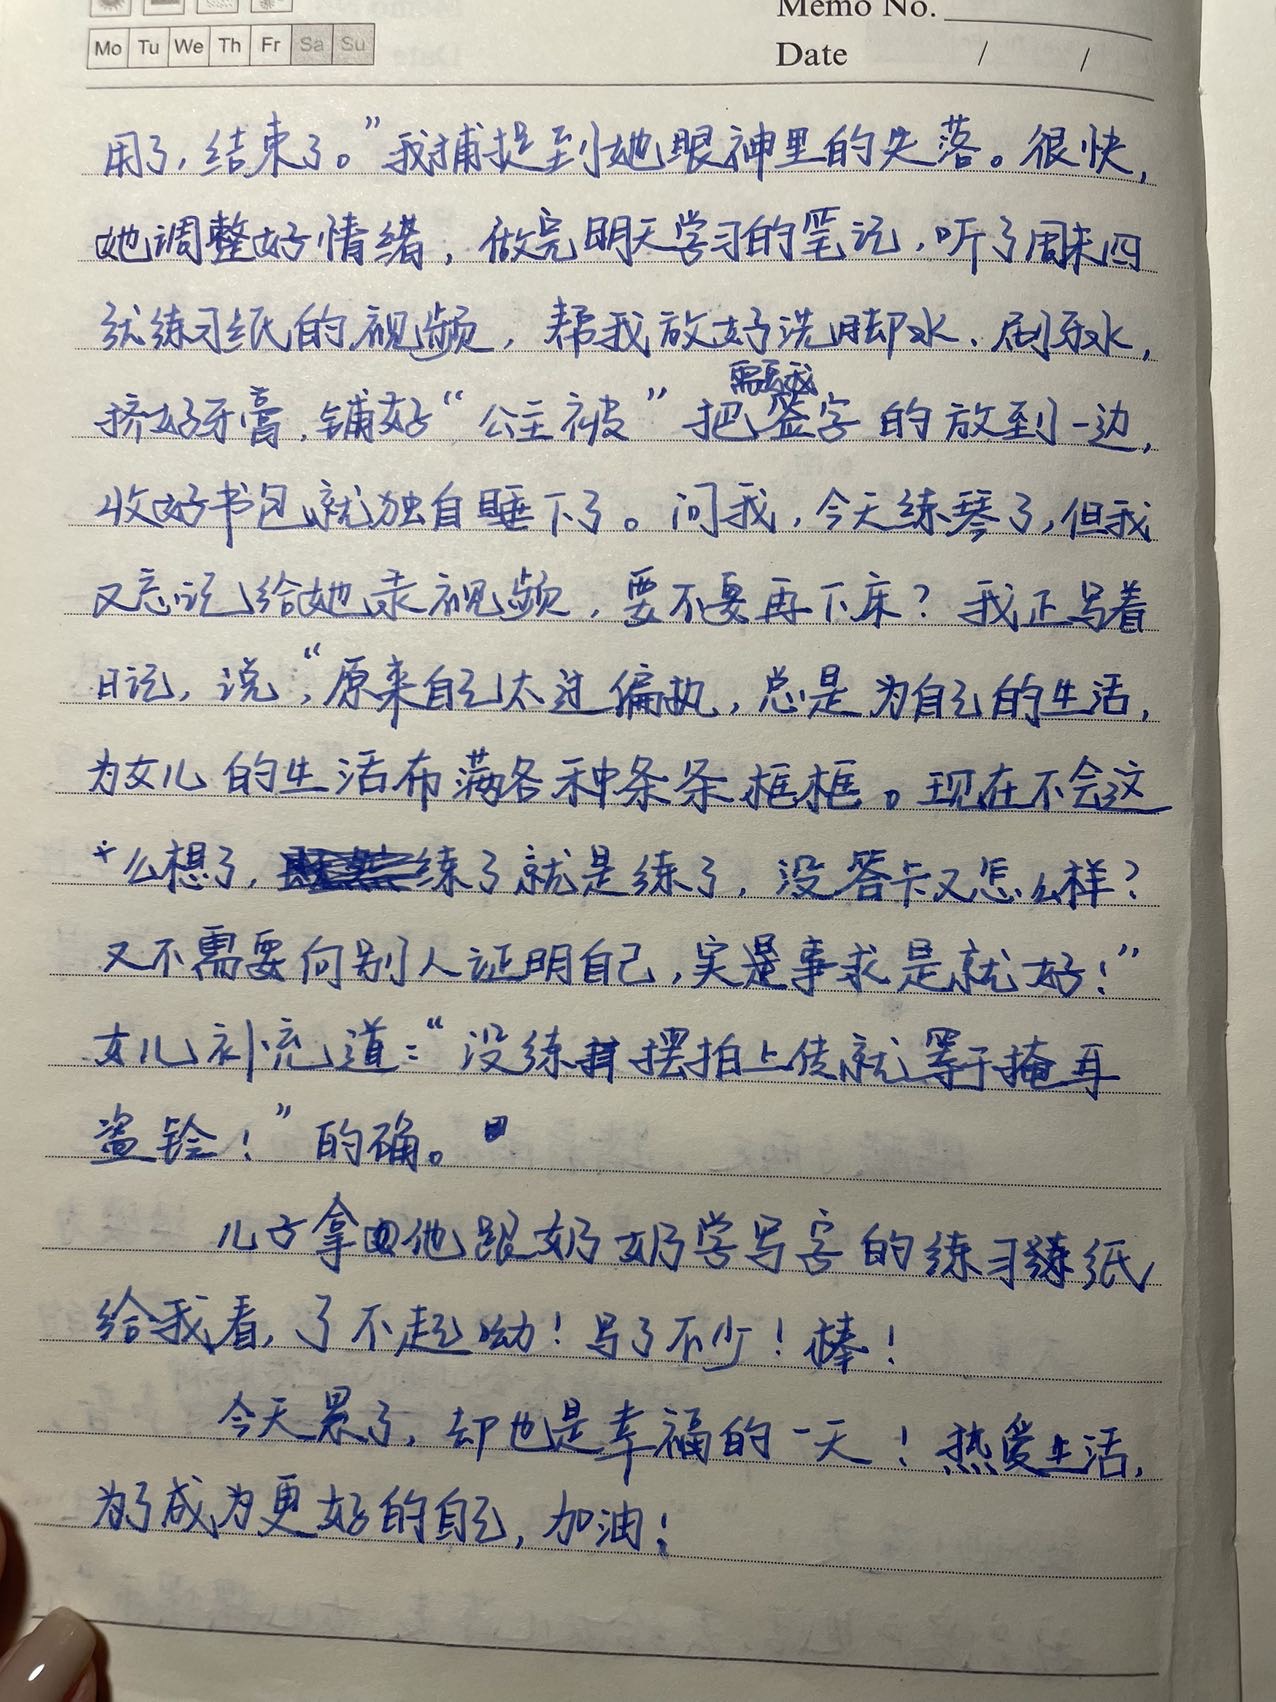 Memo No.
Mo Tu We Th Fr Sa Su
Date / /
用了，结束了。”我捕捉到她眼神里的失落。很快，
她调整好情绪，做完明天学习的笔记，听了周末四
张练习纸的视频，帮我放好洗脚水、刷牙水，
需要我
挤好牙膏，铺好“公主被”把签字的放到一边，
收好书包就独自睡下了。问我，今天练琴了，但我
又忘记给她录视频，要不要再下床？我正写着
日记，说，“原来自己太过偏执，总是为自己的生活，
为女儿的生活布满各种条条框框。现在不会这
么想了，练了就是练了，没答卡又怎么样？
又不需要向别人证明自己，实是事求是就好！”
女儿补充道：“没练摆拍上传就等于掩耳
盗铃！”的确。
儿子拿他跟奶奶学写字的练习练纸
给我看，了不起呦！写了不少！棒！
今天累了，却也是幸福的一天！热爱生活，
为了成为更好的自己，加油！